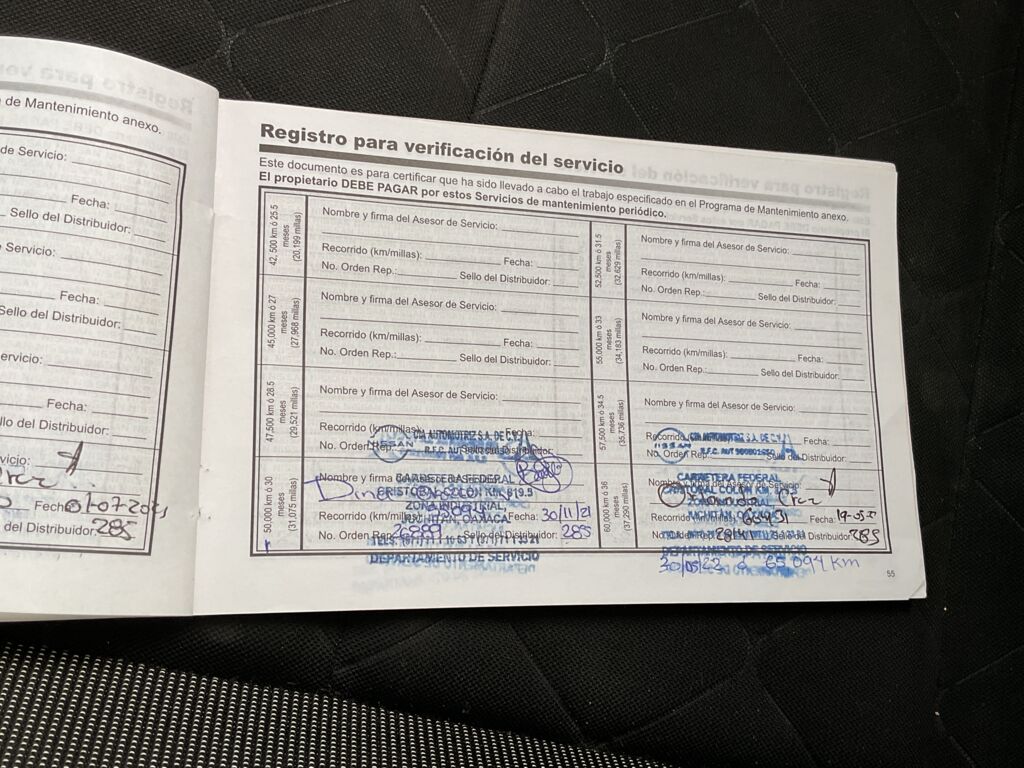 de Mantenimiento anexo.
de Servicio:
Fecha:
Sello del Distribuidor:
de Servicio:
Fecha:
Sello del Distribuidor:
ervicio:
Fecha:
del Distribuidor:
vicio:
Fecha:
del Distribuidor: 285
Registro para verificación del servicio
Este documento es para certificar que ha sido llevado a cabo el trabajo especificado en el Programa de Mantenimiento anexo.
El propietario DEBE PAGAR por estos Servicios de mantenimiento periódico.
42, 500 km ó 25.5
meses
(20,199 millas)
Nombre y firma del Asesor de Servicio:
Recorrido (km/millas): Fecha:
No. Orden Rep.: Sello del Distribuidor:
45,000 km ó 27
meses
(27,968 millas)
Nombre y firma del Asesor de Servicio:
Recorrido (km/millas): Fecha:
No. Orden Rep.: Sello del Distribuidor:
47,500 km ó 28.5
meses
(29,521 millas)
Nombre y firma del Asesor de Servicio:
Recorrido (km/millas) Fecha:
No. Orden Rep.
NISSAN
AUTOMOTRIZ S.A. DE C.V.
R.F.C.
50,000 km ó 30
meses
(31,075 millas)
Nombre y firma
CARRETERA FEDERAL
CRISTOBAL COLON KM. 819.5
ZONA INDUSTRIAL,
JUCHITÁN, OAXACA
Recorrido (km/millas) Fecha: 30/11/21
No. Orden Rep. Sello del Distribuidor: 285
DEPARTAMENTO DE SERVICIO
52,500 km ó 31.5
meses
(32,629 millas)
Nombre y firma del Asesor de Servicio:
Recorrido (km/millas): Fecha:
No. Orden Rep.: Sello del Distribuidor:
55,000 km ó 33
meses
(34,183 millas)
Nombre y firma del Asesor de Servicio:
Recorrido (km/millas): Fecha:
No. Orden Rep.: Sello del Distribuidor:
57,500 km ó 34.5
meses
(35,736 millas)
Nombre y firma del Asesor de Servicio:
Recorrido Fecha:
NISSAN
AUTOMOTRIZ S.A. DE C.V.
R.F.C.
60,000 km ó 36
meses
(37,290 millas)
Nombre Asesor de Servicio:
CARRETERA FEDERAL
CRISTOBAL COLON KM.
JUCHITÁN, OAXACA
Recorrido (km/millas) Fecha:
Distribuidor: 285
DEPARTAMENTO DE SERVICIO
65,094 km
55